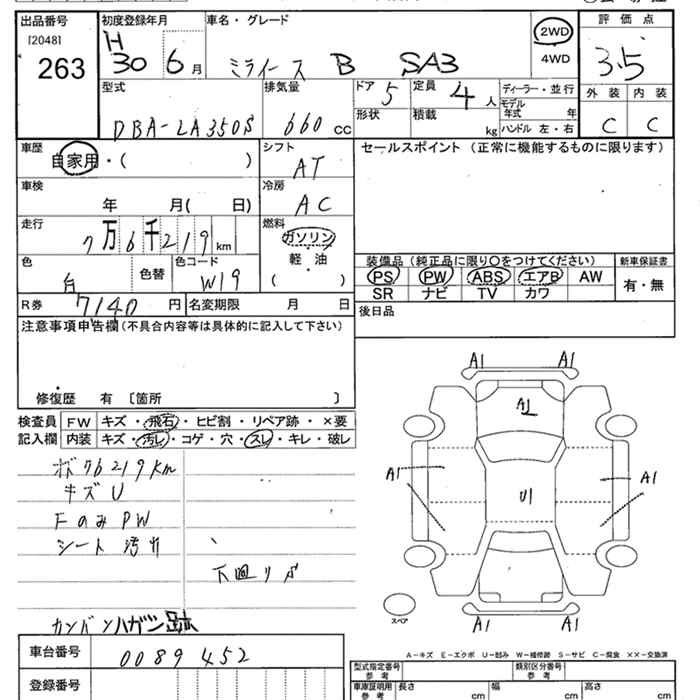 出品番号
[2048]
263
初度登録年月
H
30 6 月
車名・グレード
ミライース B SA3
2WD
4WD
評価点
3.5
外装 内装
C C
型式
DBA-LA350S
排気量
660 cc
ドア 5
形状
定員 4 人
積載 kg
ディーラー・並行
モデル年式 年
ハンドル 左・右
車歴
自家用・( )
シフト
AT
セールスポイント(正常に機能するものに限ります)
車検
年 月( 日)
冷房
AC
走行
7万6千219 km
燃料
ガソリン
軽・油
( )
色
白 色替
色コード
W19
装備品(純正品に限り〇をつけてください)
PS PW ABS エアB AW
SR ナビ TV カワ
新車保証書
有・無
R券 7140 円
名変期限 月 日
後日品
注意事項申告欄(不具合内容等は具体的に記入して下さい)
修復歴 有 〔箇所 〕
検査員
記入欄
FW キズ・飛石・ヒビ割・リペア跡・×要
内装 キズ・汚レ・コゲ・穴・スレ・キレ・破レ
ボ 76219km
キズ U
Fのみ PW
シート 汚れ
下回りサ
カンバンハガシ跡
A1 A1
A1
A1 A1
U1
A1 A1
スペア
A-キズ E-エクボ U-凹み W-補修跡 S-サビ C-腐食 ××-交換済
車台番号
0089452
登録番号
型式指定番号 参考
類別区分番号 参考
車庫証明用 参考
長さ cm
幅 cm
高さ cm